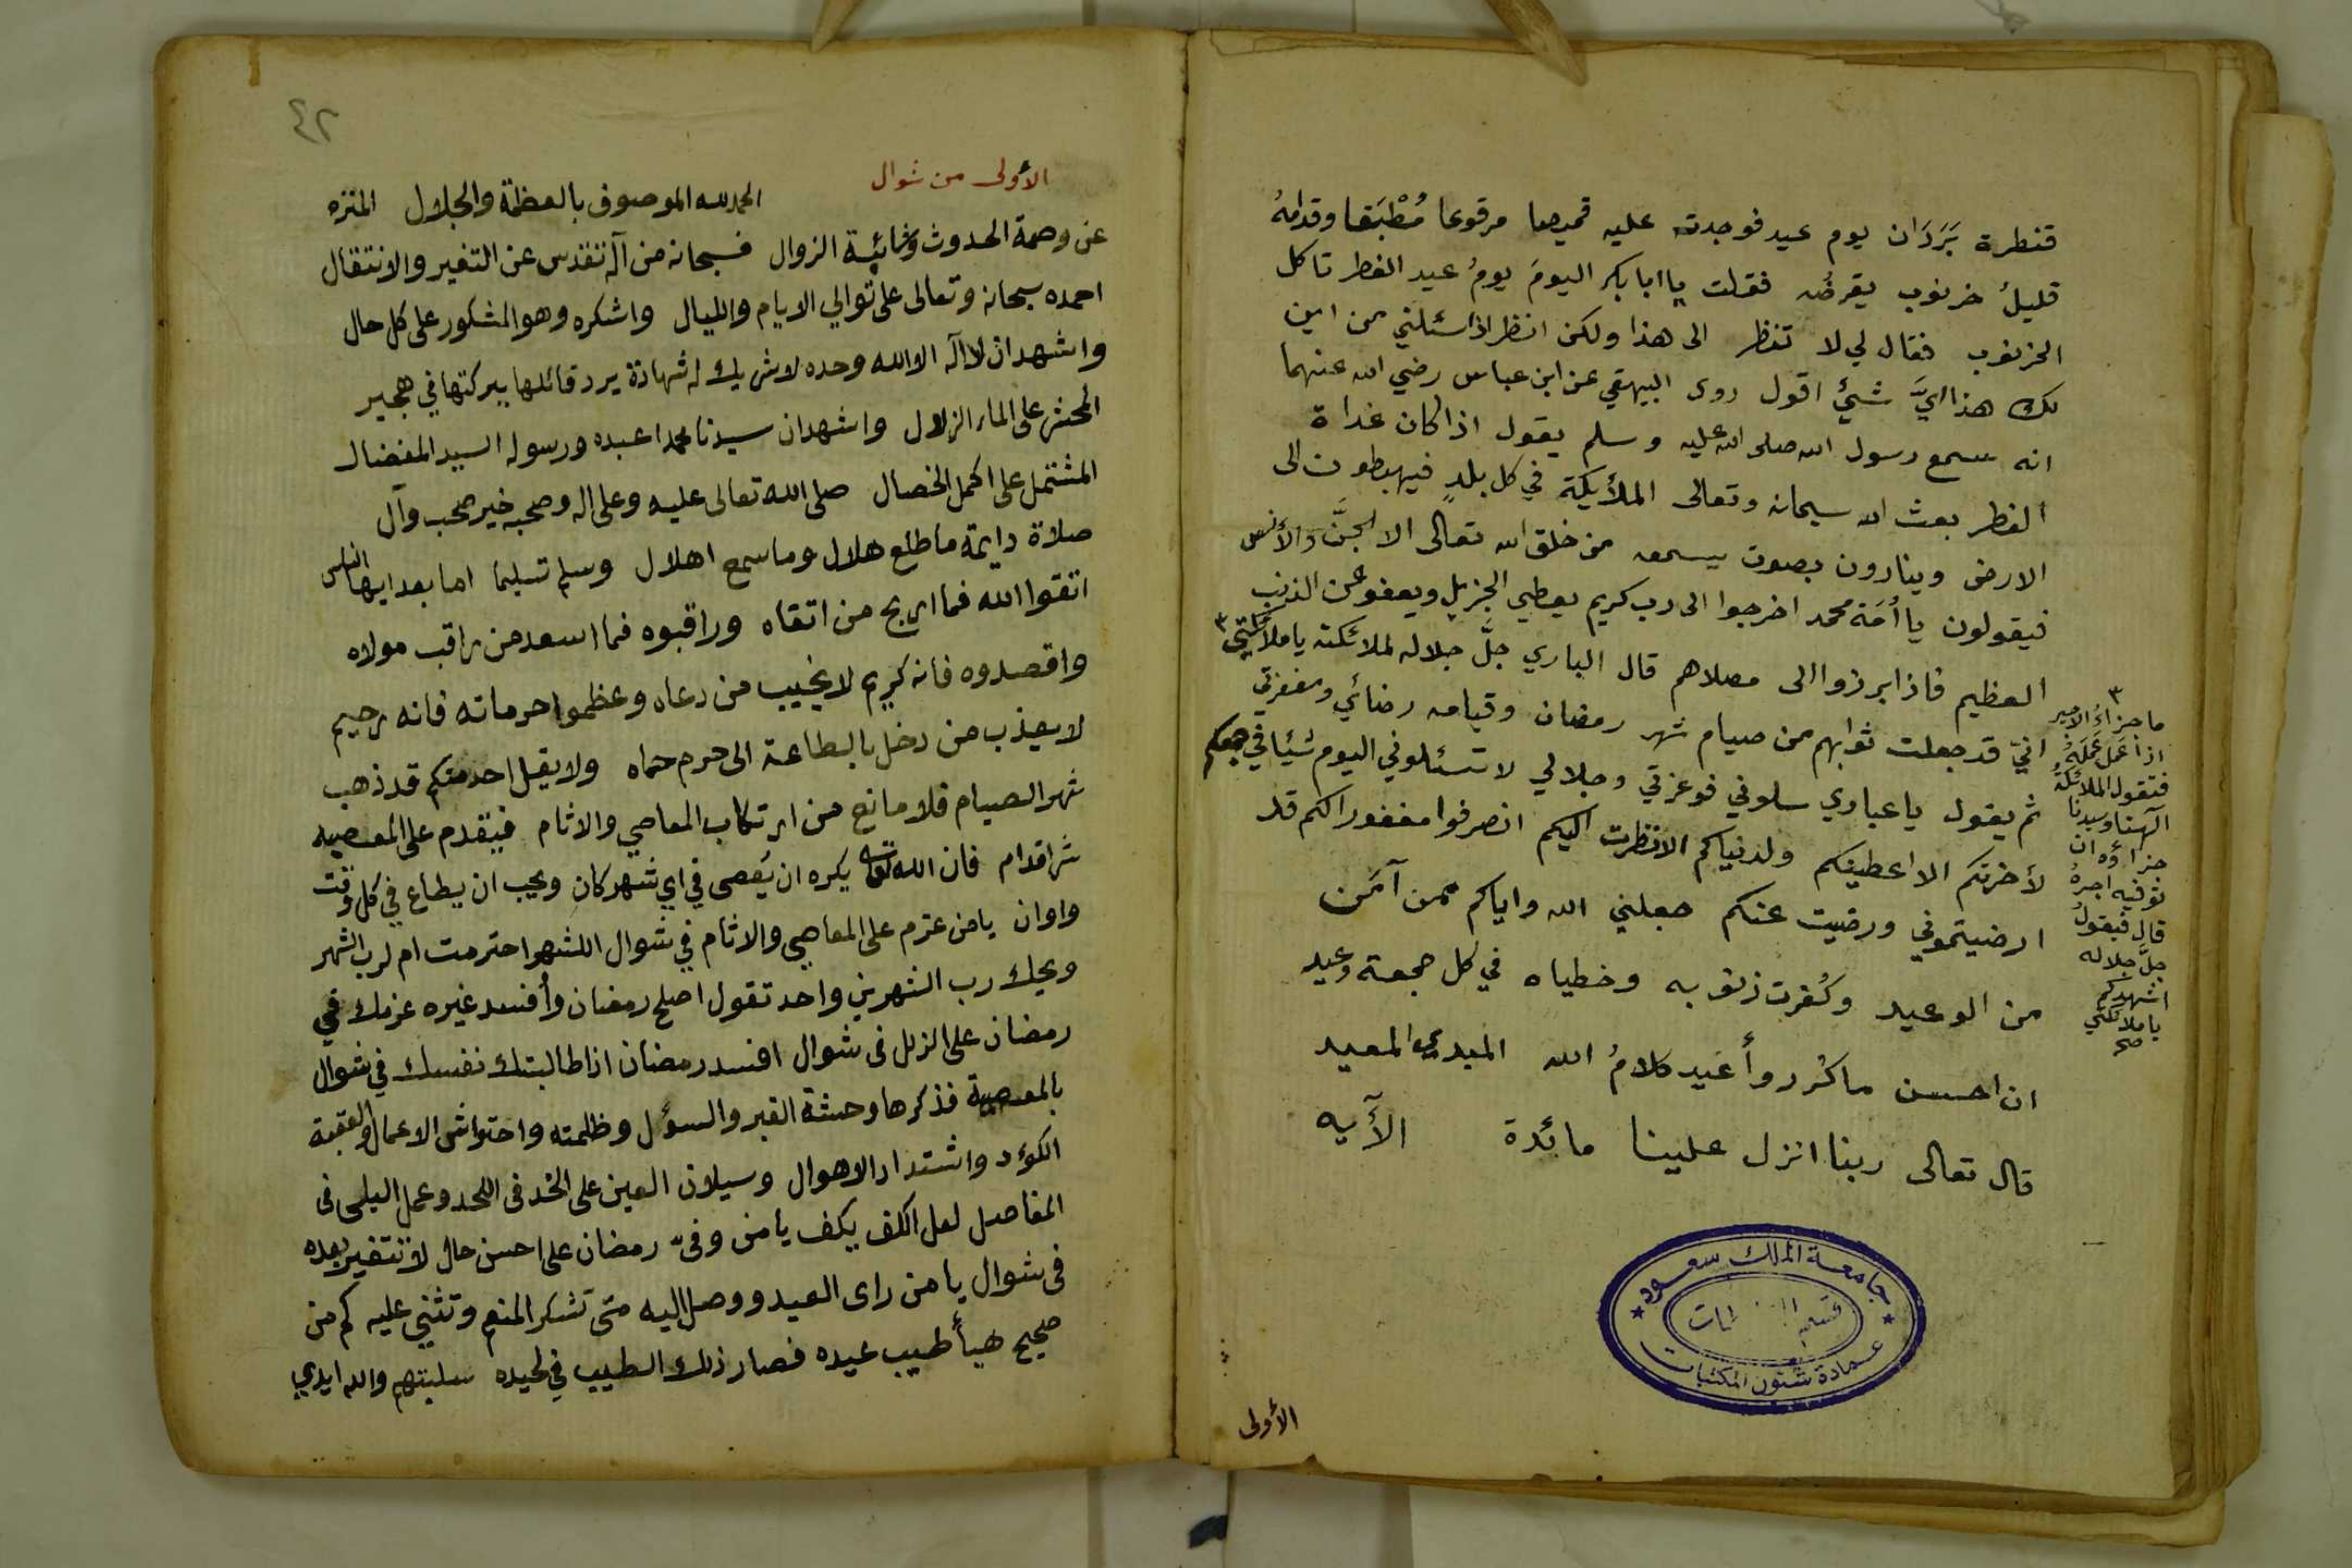 قنطرة بَرَدَان يوم عيد فوجدته عليه قميصا مرقوعا مُطْبَقا وقدامهُ
قليلُ خرنوب يقرضُه فقلت يا ابا بكر اليومَ يومُ عيد الفطر تاكل
الخرنوب فقال لي لا تنظر الى هذا ولكن انظر اذا سئلني من اين
لك هذا ايَّ شئٍ اقول روى البيهقي عن ابن عباس رضي الله عنهما
انه سمع رسول الله صلى الله عليه وسلم يقول اذا كان غداة
الفطر بعث الله سبحانه وتعالى الملأيكة في كل بلدٍ فيهبطون الى
الارض وينادون بصوت يسمعه من خلق الله تعالى الا الجنَّ والأنس
فيقولون يا أُمَّة محمد اخرجوا الى رب كريم يعطي الجزيل ويعفو عن الذنب
العظيم فاذا برزوا الى مصلاهم قال الباري جلَّ جلاله لملائكته يا ملائكتي ٣
انيّ قد جعلت ثوابهم من صيام شهر رمضان وقيامه رضائي ومغفرتي
ثم يقول يا عبادي سلوني فوعزتي وجلالي لا تسئلوني اليوم شيئا في جمعكم
لأخرتكم الا اعطيتكم ولدنياكم الا نظرت اليكم انصرفوا مغفورا لكم قد
ارضيتموني ورضيت عنكم جعلني الله واياكم ممن آمَن
من الوعيد وكُفرت ذنوبه وخطياه في كل جمعة وعيد
ان احسن ما كُرر وأُعيد كلامُ الله المبدي المعيد
قال تعالى ربنا انزل علينا مائدة الأيه
٣
ما جزاءُ الاجير
اذا عَمَل عَمَلَهُ
فتقول الملائكةُ
آلهنا وسيدنا
جزاؤه ان
توفيه اجرهُ
قال فيقولُ
جلَّ جلاله
اشهدكم
يا ملائكتي
صح
جامعة الملك سعود
قسم
عمادة شئون المكتبات
الأولى
٤٢
الأولى من شوال الحمد لله الموصوف بالعظمة والجلال المنزه
عن وصمة الحدوث وشائبة الزوال فسبحانه من آله تقدس عن التغير والانتقال
احمده سبحانه وتعالى على توالي الايام والليال واشكره وهو المشكور على كل حال
واشهد ان لا اله الا الله وحده لا شريك له شهادة يرد قائلها ببركتها في هجير
المحشر على الماء الزلال واشهد ان سيدنا محمدا عبده ورسوله السيد المفضال
المشتمل على اكمل الخصال صلى الله تعالى عليه وعلى اله وصحبه خير صحب وآل
صلاة دايمة ما طلع هلال وما سمع اهلال وسلم تسليما اما بعد ايها الناس
اتقوا الله فما اربح من اتقاه وراقبوه فما اسعد من راقب مولاه
واقصدوه فانه كريم لا يخيب من دعاه وعظموا حرماته فانه رحيم
لا يعذب من دخل بالطاعة الى حرم حماه ولا يقل احدمنكم قد ذهب
شهر الصيام فلا مانع من ارتكاب المعاصي والاثام فيتقدم على المعصيه
شر اقدام فان الله تعالى يكره ان يُعصى في اي شهر كان ويحب ان يطاع في كل وقت
واوان يا من عزم على المعاصي والاثام في شوال اللشهر احترمت ام لرب الشهر
ويحك رب الشهرين واحد تقول اصلح رمضان وأفسد غيره عزمك في
رمضان على الزلل فى شوال افسد رمضان اذا طالبتك نفسك في شوال
بالمعصية فذكرها وحشة القبر والسؤل وظلمته واحتواش الاعمال والعقبة
الكؤد واشتداد الاهوال وسيلان العين على الخد فى اللحد وعمل البلى فى
المفاصل لعل الكف يكف يا من وفىّ رمضان على احسن حال لا تتغير بعده
فى شوال يا من راى العيد ووصل اليه متى تشكر المنعم وتثني عليه كم من
صحيح هيأ طيب عيده فصار ذلك الطيب في لحيده سلبتهم والله ايدي